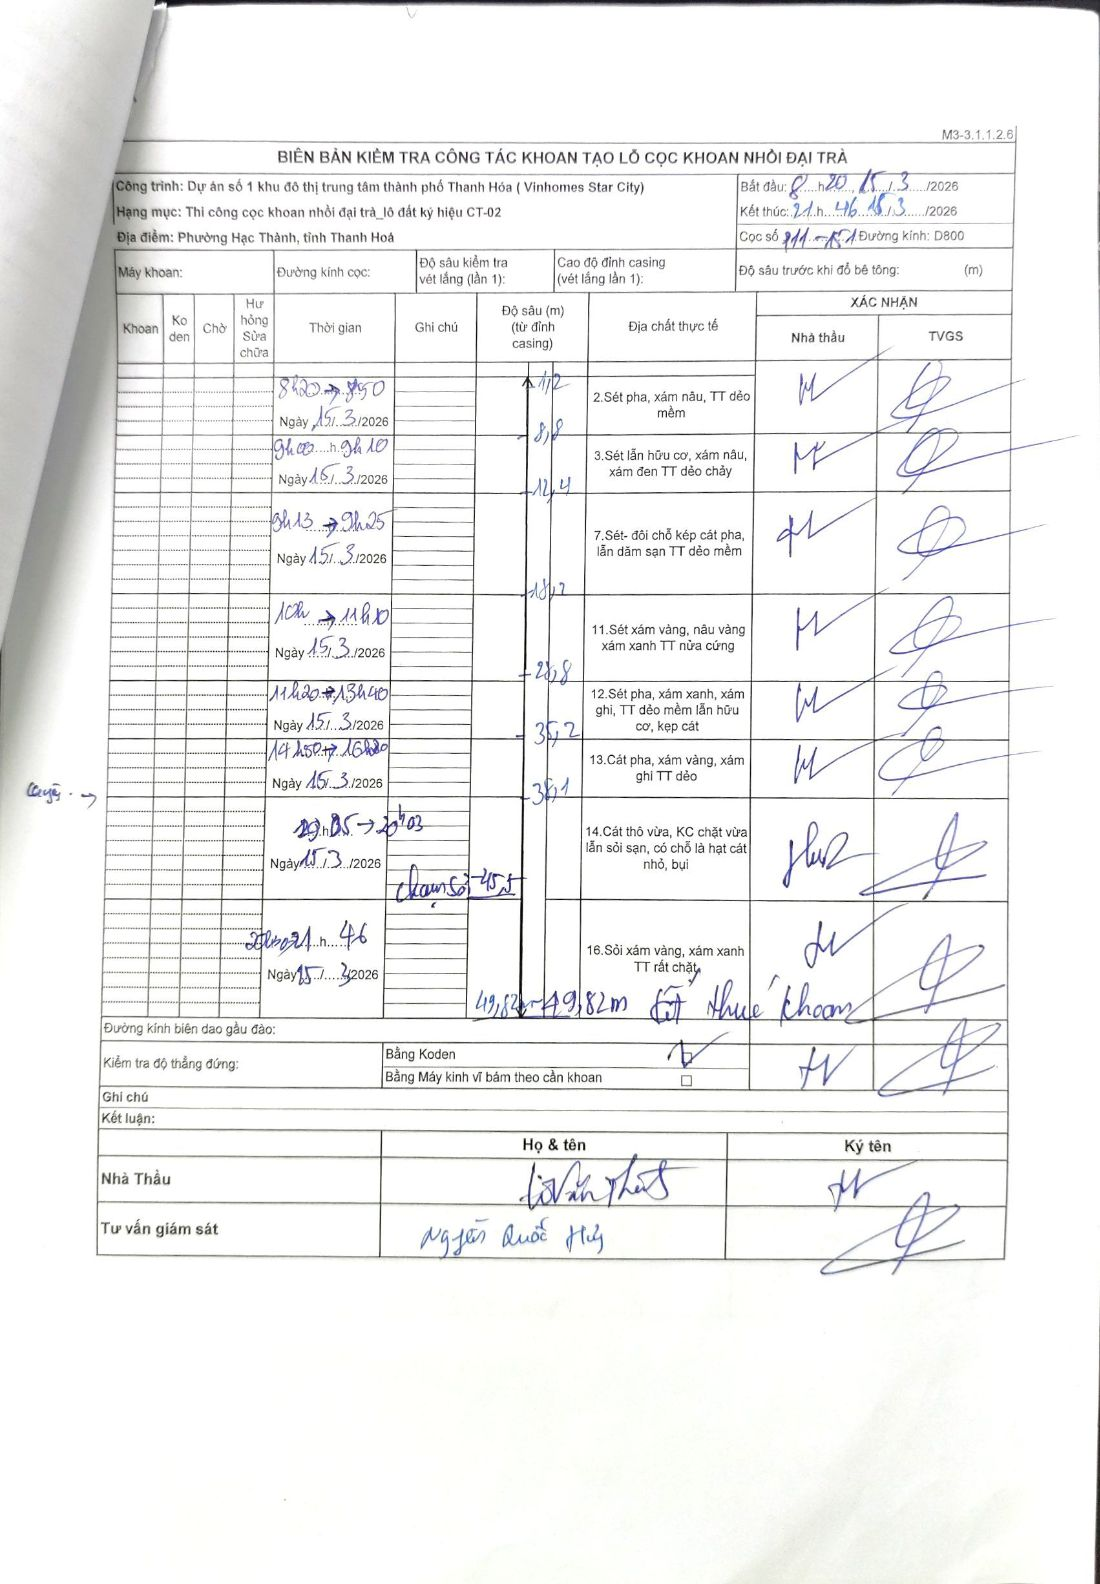 M3-3.1.1.2.6
BIÊN BẢN KIỂM TRA CÔNG TÁC KHOAN TẠO LỖ CỌC KHOAN NHỒI ĐẠI TRÀ
Công trình: Dự án số 1 khu đô thị trung tâm thành phố Thanh Hóa ( Vinhomes Star City)
Bắt đầu: 8 h 20, 15/3/2026
Hạng mục: Thi công cọc khoan nhồi đại trà_lô đất ký hiệu CT-02
Kết thúc: 21 h 46 15/3/2026
Địa điểm: Phường Hạc Thành, tỉnh Thanh Hoá
Cọc số Đường kính: D800
Máy khoan:
Đường kính cọc:
Độ sâu kiểm tra vét lắng (lần 1):
Cao độ đỉnh casing (vét lắng lần 1):
Độ sâu trước khi đổ bê tông: (m)
Khoan
Ko den
Chờ
Hư hỏng Sửa chữa
Thời gian
Ghi chú
Độ sâu (m) (từ đỉnh casing)
Địa chất thực tế
XÁC NHẬN
Nhà thầu
TVGS
8h20 → 8h50
Ngày 15/3/2026
1,2
2.Sét pha, xám nâu, TT dẻo mềm
8,8
9h00 h 9h10
Ngày 15/3/2026
3.Sét lẫn hữu cơ, xám nâu, xám đen TT dẻo chảy
12,4
9h13 → 9h25
Ngày 15/3/2026
7.Sét- đôi chỗ kép cát pha, lẫn dăm sạn TT dẻo mềm
18,2
10h → 11h10
Ngày 15/3/2026
11.Sét xám vàng, nâu vàng xám xanh TT nửa cứng
28,8
11h20 → 13h40
Ngày 15/3/2026
12.Sét pha, xám xanh, xám ghi, TT dẻo mềm lẫn hữu cơ, kẹp cát
35,2
14h50 →
Ngày 15/3/2026
13.Cát pha, xám vàng, xám ghi TT dẻo
38,1
→ 20h03
Ngày 15/3/2026
14.Cát thô vừa, KC chặt vừa lẫn sỏi sạn, có chỗ là hạt cát nhỏ, bụi
chạm sỏi -45,5
21 h 46
Ngày 15/3/2026
16.Sỏi xám vàng, xám xanh TT rất chặt
49,82m 49,82m khoan
Đường kính biên dao gầu đào:
Kiểm tra độ thẳng đứng:
Bằng Koden
Bằng Máy kinh vĩ bám theo cần khoan
Ghi chú
Kết luận:
Họ & tên
Ký tên
Nhà Thầu
Tư vấn giám sát
Nguyễn Quốc Huy